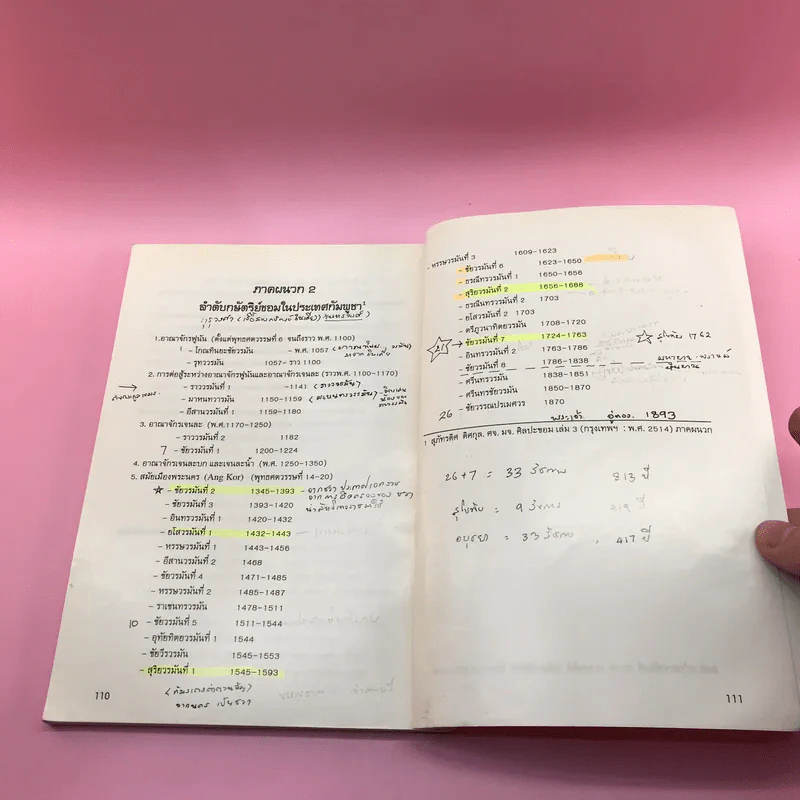 ภาคผนวก 2
ลำดับกษัตริย์ขอมในประเทศกัมพูชา¹
1.อาณาจักรฟูนัน (ตั้งแต่พุทธศตวรรษที่ 6 จนถึงราว พ.ศ. 1100)
1 - โกณทินยะชัยวรมัน - พ.ศ. 1057
- รุทรวรมัน 1057- ราว 1100
2. การต่อสู้ระหว่างอาณาจักรฟูนันและอาณาจักรเจนละ (ราวพ.ศ. 1100-1170)
- ราววรมันที่ 1 -1141
- มาหนทวรวรมัน 1150-1159
- อีสานวรมันที่ 1 1159-1180
3. อาณาจักรเจนละ (พ.ศ.1170-1250)
- ราววรมันที่ 2 1182
7 - ชัยวรมันที่ 1 1200-1224
4. อาณาจักรเจนละบก และเจนละน้ำ (พ.ศ. 1250-1350)
5. สมัยเมืองพระนคร (Ang Kor) (พุทธศตวรรษที่ 14-20)
- ชัยวรมันที่ 2 1345-1393
- ชัยวรมันที่ 3 1393-1420
- อินทรวรมันที่ 1 1420-1432
- ยโสวรมันที่ 1 1432-1443
- หรรษวรมันที่ 1 1443-1456
- อีสานวรมันที่ 2 1468
- ชัยวรมันที่ 4 1471-1485
- หรรษวรมันที่ 2 1485-1487
- ราเชนทรวรมัน 1478-1511
10 - ชัยวรมันที่ 5 1511-1544
- อุทัยทิตยวรมันที่ 1 1544
- ชัยวีรวรมัน 1545-1553
- สุริยวรมันที่ 1 1545-1593
110
- หรรษวรมันที่ 3 1609-1623
- ชัยวรมันที่ 6 1623-1650
- ธรณีนทรวรมันที่ 1 1650-1656
- สุริยวรมันที่ 2 1656-1688
- ธรณีนทรวรมันที่ 2 1703
- ยโสวรมันที่ 2 1703
- ตรีภูวนาทิตยวรมัน 1708-1720
- ชัยวรมันที่ 7 1724-1763 สุโขทัย 1762
- อินทรวรมันที่ 2 1763-1786
- ชัยวรมันที่ 8 1786-1838
- ศรีนทรวรมัน 1838-1851
- ศรีนทรชัยวรมัน 1850-1870
26 - ชัยวรรณปรเมศวร 1870
พระเจ้า อู่ทอง 1893
1 สุภัทรดิศ ดิศกุล. ศจ. มจ. ศิลปะขอม เล่ม 3 (กรุงเทพฯ : พ.ศ. 2514) ภาคผนวก
26+7 = 33 รัชกาล 813 ปี
สุโขทัย = 9 รัชกาล 219 ปี
อยุธยา = 33 รัชกาล 417 ปี
111